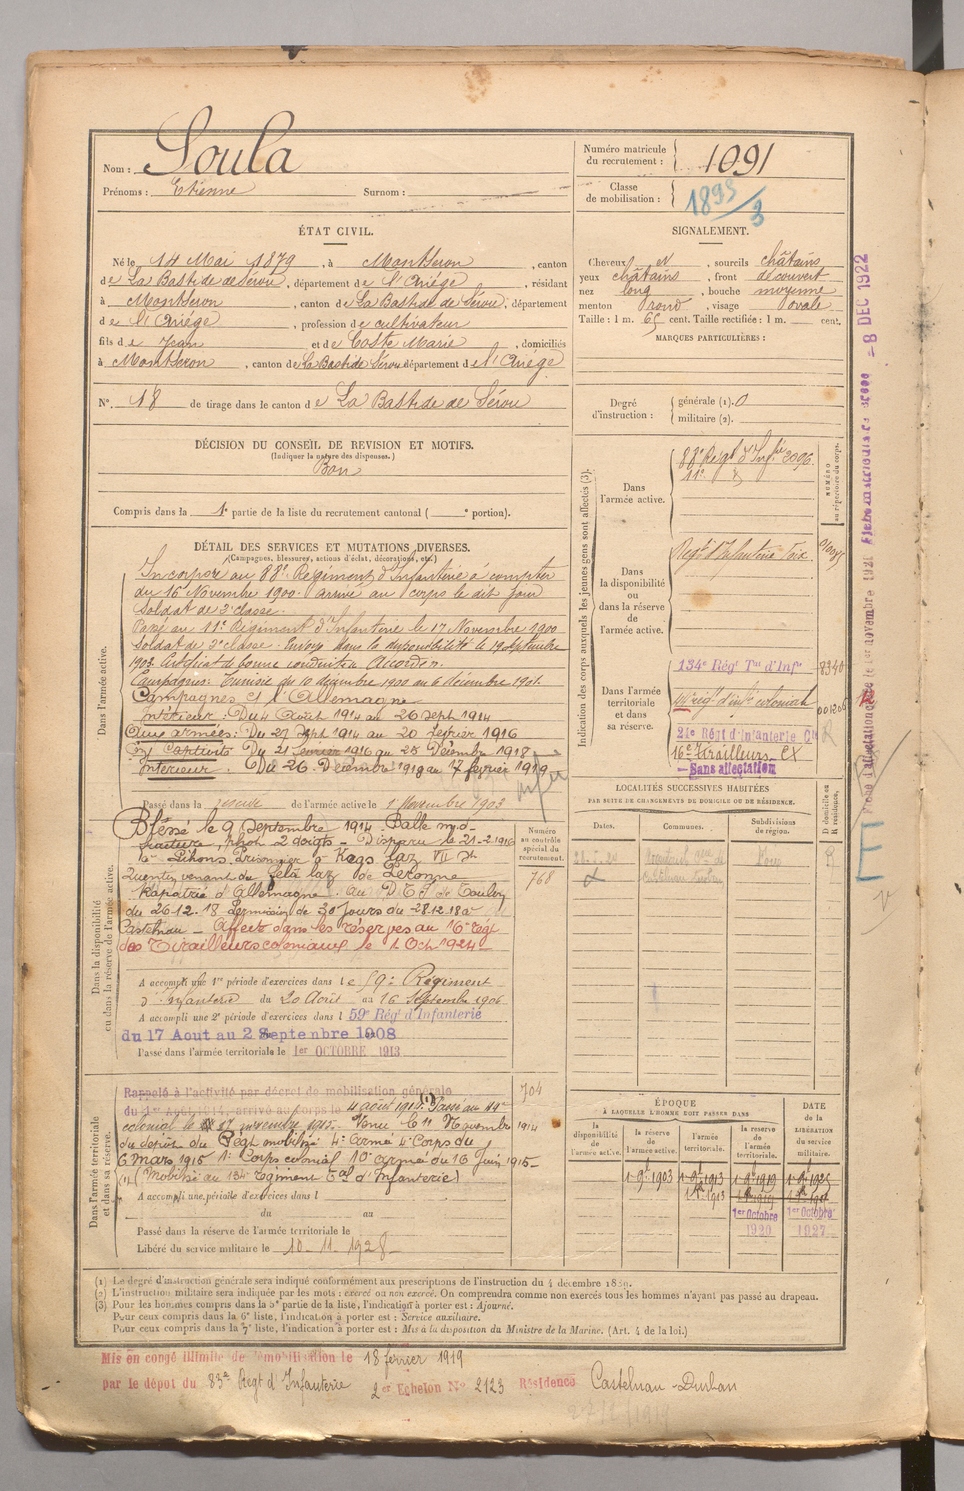 Nom : Soula
Prénoms : Etienne Surnom :
Numéro matricule du recrutement : 1091
Classe de mobilisation : 1895/3
ÉTAT CIVIL.
Né le 14 Mai 1879, à Montseron, canton
de La Bastide de Sérou, département de l'Ariége, résidant
à Montseron, canton de La Bastide de Sérou, département
de l'Ariége, profession de cultivateur
fils de Jean et de Coste Marie, domiciliés
à Montseron, canton de La Bastide Sérou département de l'Ariége
N° 18 de tirage dans le canton de La Bastide de Sérou
SIGNALEMENT.
Cheveux N sourcils châtains
yeux châtains, front découvert
nez long, bouche moyenne
menton rond, visage ovale
Taille : 1 m. 65 cent. Taille rectifiée : 1 m. cent.
MARQUES PARTICULIÈRES :
Degré d'instruction : générale (1). 0
militaire (2).
DÉCISION DU CONSEIL DE REVISION ET MOTIFS.
(Indiquer la nature des dispenses.)
Bon
Compris dans la 1e partie de la liste du recrutement cantonal ( e portion).
DÉTAIL DES SERVICES ET MUTATIONS DIVERSES.
(Campagnes, blessures, actions d'éclat, décorations, etc.)
Dans l'armée active.
Incorporé au 88e Régiment d'Infanterie à compter
du 16 Novembre 1900. Arrivé au corps le dit jour
Soldat de 2e classe.
Passé au 11e Régiment d'Infanterie le 17 Novembre 1900
Soldat de 2e classe. Envoyé dans la disponibilité le 19 septembre
1903. Certificat de bonne conduite Accordé.
Campagnes: Tunisie du 10 décembre 1900 au 6 décembre 1901.
Campagnes ct l'Allemagne
Intérieur. Du 4 Août 1914 au 26 Sept 1914
Aux armées : Du 27 Sept 1914 au 20 février 1916
En Captivité Du 21 février 1916 au 25 Décembre 1918
Intérieur. Du 26 Décembre 1918 au 17 février 1919
Passé dans la réserve de l'armée active le 1 Novembre 1903
Dans la disponibilité ou dans la réserve de l'armée active.
Blessé le 9 Septembre 1914. Balle md.
fracture, phal 2 doigts - Disparu le 21-2-1916
à Lihons. Prisonnier à Kgs laz VII St
Quentin venant de Feld laz de Peronne
Rapatrié d'Allemagne. au D.T.I de Toulon
du 26.12.18 Permission de 30 Jours du 28.12.18 à
Castelnau - Affecté dans les réserves au 16e régt
des Tirailleurs coloniaux le 1 Oct 1924
A accompli une 1re période d'exercices dans le 59e Régiment
d'Infanterie du 20 Août au 16 Septembre 1906
A accompli une 2e période d'exercices dans l 59e Régt d'Infanterie
du 17 Aout au 2 Septembre 1908
Passé dans l'armée territoriale le 1er OCTOBRE 1913
Numéro au contrôle spécial du recrutement.
768
704
Dans l'armée territoriale et dans sa réserve.
Rappelé à l'activité par décret de mobilisation générale
du 1er Août 1914, arrivé au corps le 4 août 1914 (1) Passé au
colonial le novembre 1915. Venu le 11 Novembre 1914
du dépôt du Régt mobilisé 4e armée 4e Corps du
6 mars 1915 1e Corps colonial 10e armée du 16 Juin 1915
(1) (Mobilisé au 134e Régiment Tal d'Infanterie)
A accompli une période d'exercices dans l
du au
Passé dans la réserve de l'armée territoriale le
Libéré du service militaire le 10-11-1928
Indication des corps auxquels les jeunes gens sont affectés (3).
NUMÉRO au répertoire du corps.
Dans l'armée active.
88e Régt d'Infrie 2096.
11e d°
Dans la disponibilité ou dans la réserve de l'armée active.
Régt d'Infanterie Foix
Dans l'armée territoriale et dans sa réserve.
134e Régt Tal d'Infie 8340
régt d'infie coloniale
21e Régt d'Infanterie Cle
16e Tirailleurs CX
Sans affectation
LOCALITÉS SUCCESSIVES HABITÉES
PAR SUITE DE CHANGEMENTS DE DOMICILE OU DE RÉSIDENCE.
Dates. Communes. Subdivisions de région. D domicile ou R résidence.
Castelnau Durban Foix R
ÉPOQUE
À LAQUELLE L'HOMME DOIT PASSER DANS
DATE de la LIBÉRATION du service militaire.
la disponibilité de l'armée active. la réserve de l'armée active. l'armée territoriale. la réserve de l'armée territoriale.
1-9t 1903 1-9t 1913 1-9t 1919 1-9t 1925
1er Octobre 1920 1er Octobre 1927
(1) Le degré d'instruction générale sera indiqué conformément aux prescriptions de l'instruction du 4 décembre 1889.
(2) L'instruction militaire sera indiquée par les mots : exercé ou non exercé. On comprendra comme non exercés tous les hommes n'ayant pas passé au drapeau.
(3) Pour les hommes compris dans la 5e partie de la liste, l'indication à porter est : Ajourné.
Pour ceux compris dans la 6e liste, l'indication à porter est : Service auxiliaire.
Pour ceux compris dans la 7e liste, l'indication à porter est : Mis à la disposition du Ministre de la Marine. (Art. 4 de la loi.)
Mis en congé illimité de démobilisation le 18 février 1919
par le dépôt du 83e Régt d'Infanterie 2er Echelon N° 2123 Résidence Castelnau-Durban
-8 DEC 1922